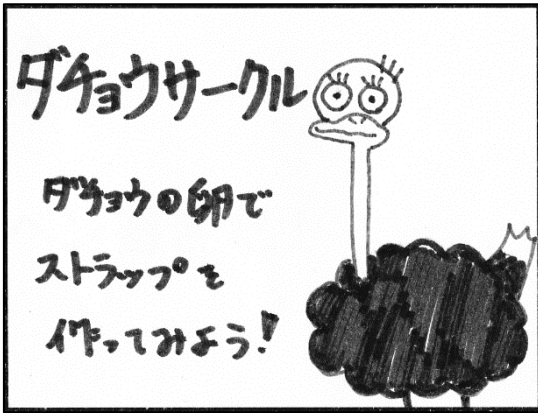 ダチョウサークル
ダチョウの卵で
ストラップを
作ってみよう!